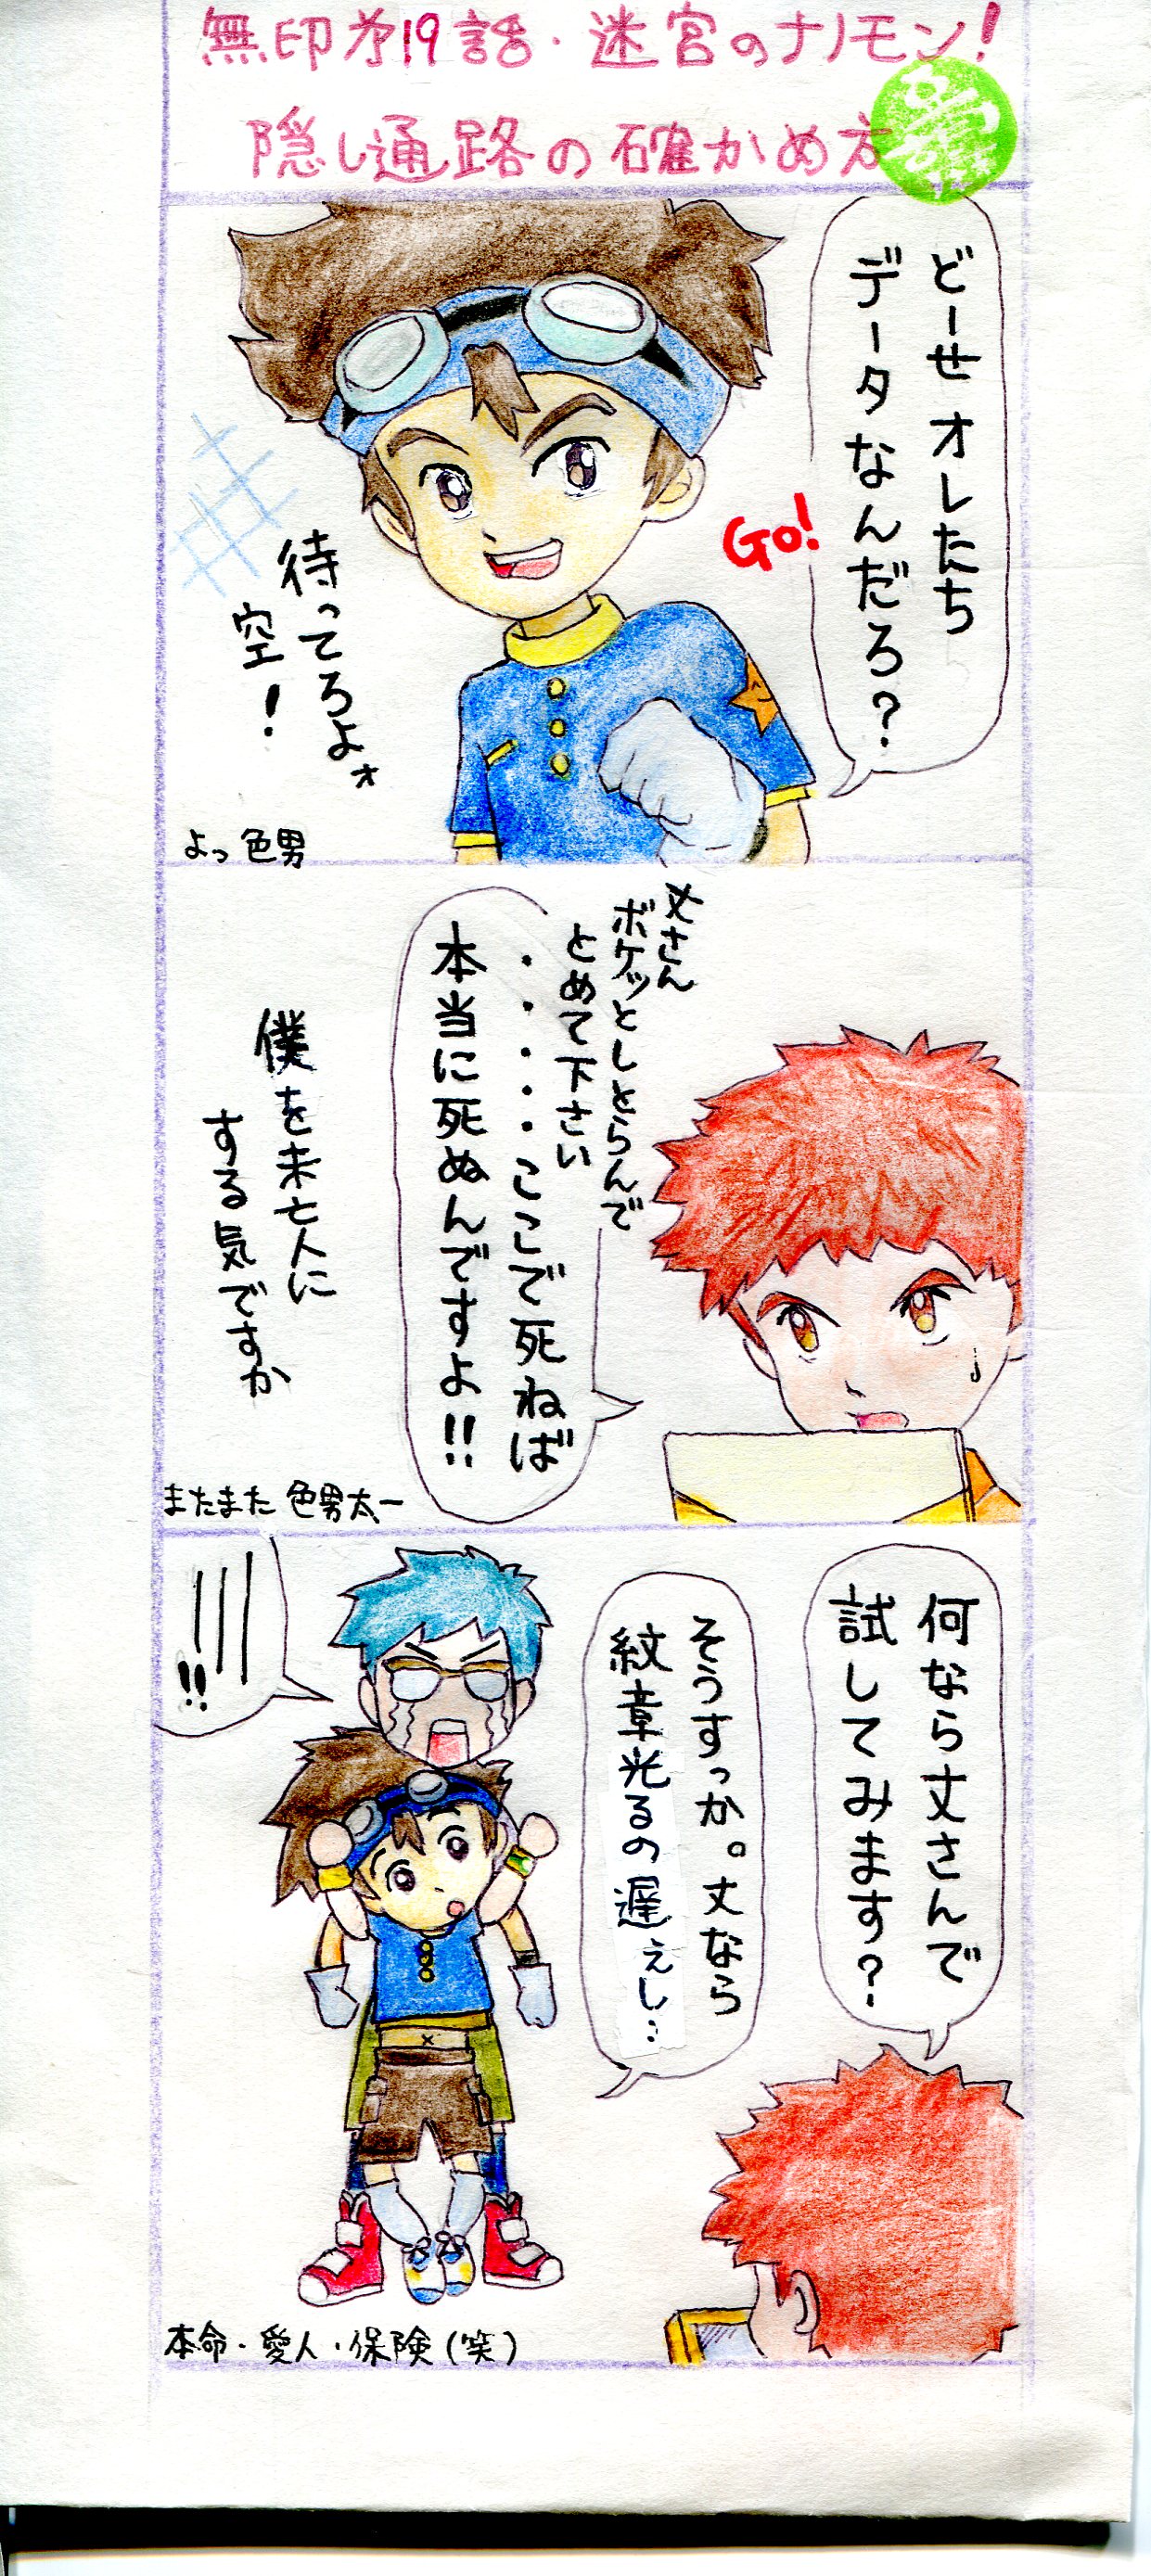 無印第19話・迷宮のナノモン!
隠し通路の確かめ方
どーせオレたち
データなんだろ?
Go!
待ってろよォ
空!
よっ色男
丈さん
ボケッとしとらんで
とめて下さい
・・・・・ここで死ねば
本当に死ぬんですよ!!
僕を未亡人に
する気ですか
またまた色男太一
何なら丈さんで
試してみます?
そうすっか。丈なら
紋章光るの遅ぇし…
!!
本命・愛人・保険(笑)